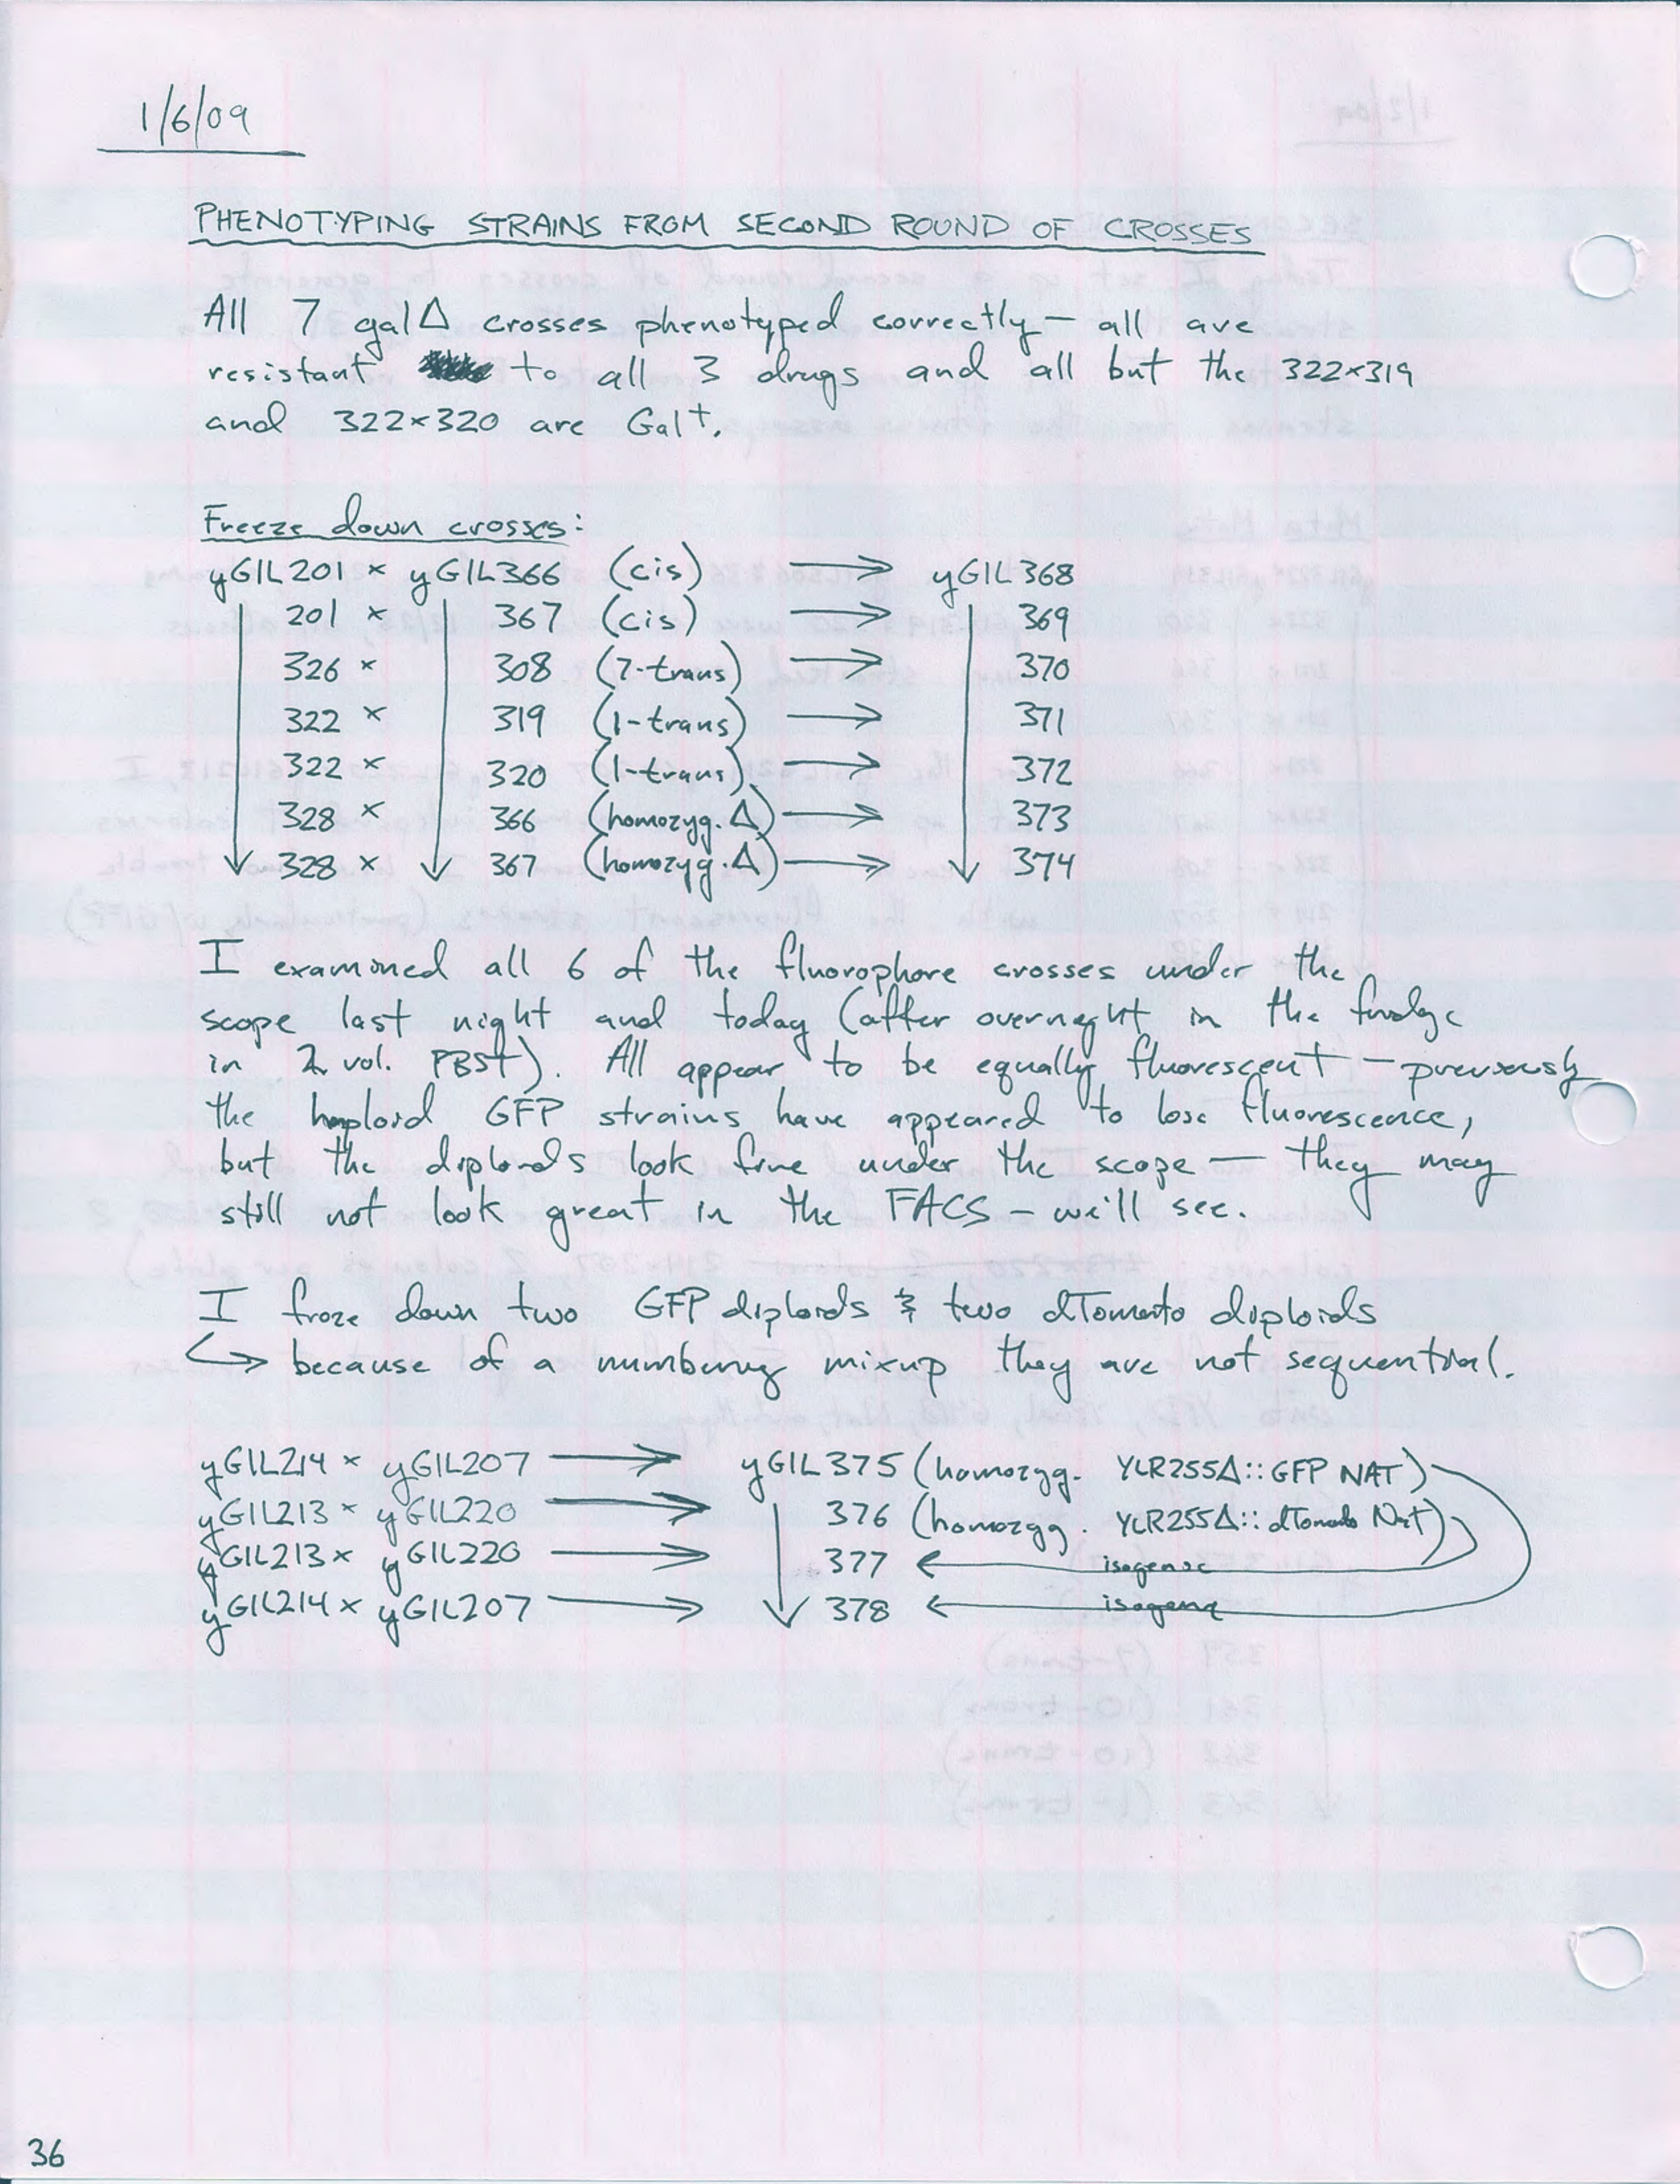 1/6/09
PHENOTYPING STRAINS FROM SECOND ROUND OF CROSSES
All 7 galΔ crosses phenotyped correctly – all are
resistant to all 3 drugs and all but the 322×319
and 322×320 are Gal⁺.
Freeze down crosses:
yGIL201 × yGIL366 (cis) → yGIL368
201 × 367 (cis) → 369
326 × 308 (7-trans) → 370
322 × 319 (1-trans) → 371
322 × 320 (1-trans) → 372
328 × 366 (homozyg. Δ) → 373
328 × 367 (homozyg. Δ) → 374
I examined all 6 of the fluorophore crosses under the
scope last night and today (after overnight in the fridge
in 2 vol. PBST). All appear to be equally fluorescent – previously
the haploid GFP strains have appeared to lose fluorescence,
but the diploids look fine under the scope – they may
still not look great in the FACS – we'll see.
I froze down two GFP diploids & two dTomato diploids
↳ because of a numbering mixup they are not sequential.
yGIL214 × yGIL207 → yGIL375 (homozyg. YLR255Δ::GFP NAT)
yGIL213 × yGIL220 → 376 (homozyg. YLR255Δ::dTomato Nat)
yGIL213 × yGIL220 → 377 ← isogenic
yGIL214 × yGIL207 → 378 ← isogenic
36